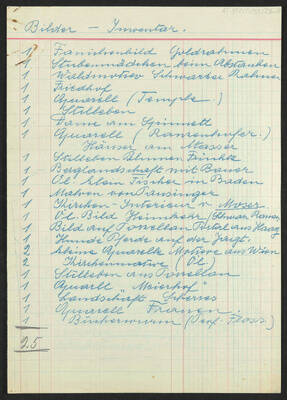 Bilder - Inventar.
1 Familienbild Goldrahmen
1 Stubenmädchen beim Abstauben
1 Waldmotiv Schwarzer Rahmen
1 Friedhof
1 Aquarell (Temple)
1 Stilleben
1 Dame am Spinnett
1 Aquarell (Ranzenhofer)
Häuser am Wasser
1 Stilleben Blumen Früchte
1 Berglandschaft mit Bauer
1 Öl klein Fischer in Baden
1 Mahner von
1 Kirchen-Interieur v. Moser
1 Öl. Bild Heimkehr (Schwarz. Rahmen
1 Bild auf Porzellan
1 Hunde Pferde auf der Jagt.
2 kleine Aquarelle Motive aus Wien
2 Kirchenmotive (Öl)
1 Stilleben aus Porzellan
1 Aquarell "Meierhof"
1 Landschaft
1 Aquarell Frauen
1 Bücherwurm (Prof.
25